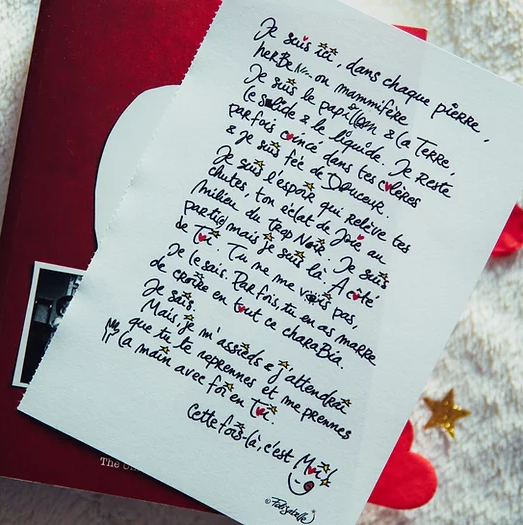 Je suis ici, dans chaque pierre,
herBe ou mammifère.
Je suis le papillon & la Terre,
le solide & le liquide. Je reste
parfois coincé dans tes colères
& je suis fée de Douceur.
Je suis l'espoir qui relève tes
chutes, ton éclat de Joie au
milieu du trop Noir. Je suis
parti(e) mais je suis là. A côté
de Toi. Tu me me vois pas,
Je le sais. Parfois, tu en as marre
de croire en tout ce charaBia.
Je sais.
Mais, je m'assieds & j'attendrai
que tu te reprennes et me prennes
la main avec foi en Toi.
Cette fois-là, c'est Moi!
©
The